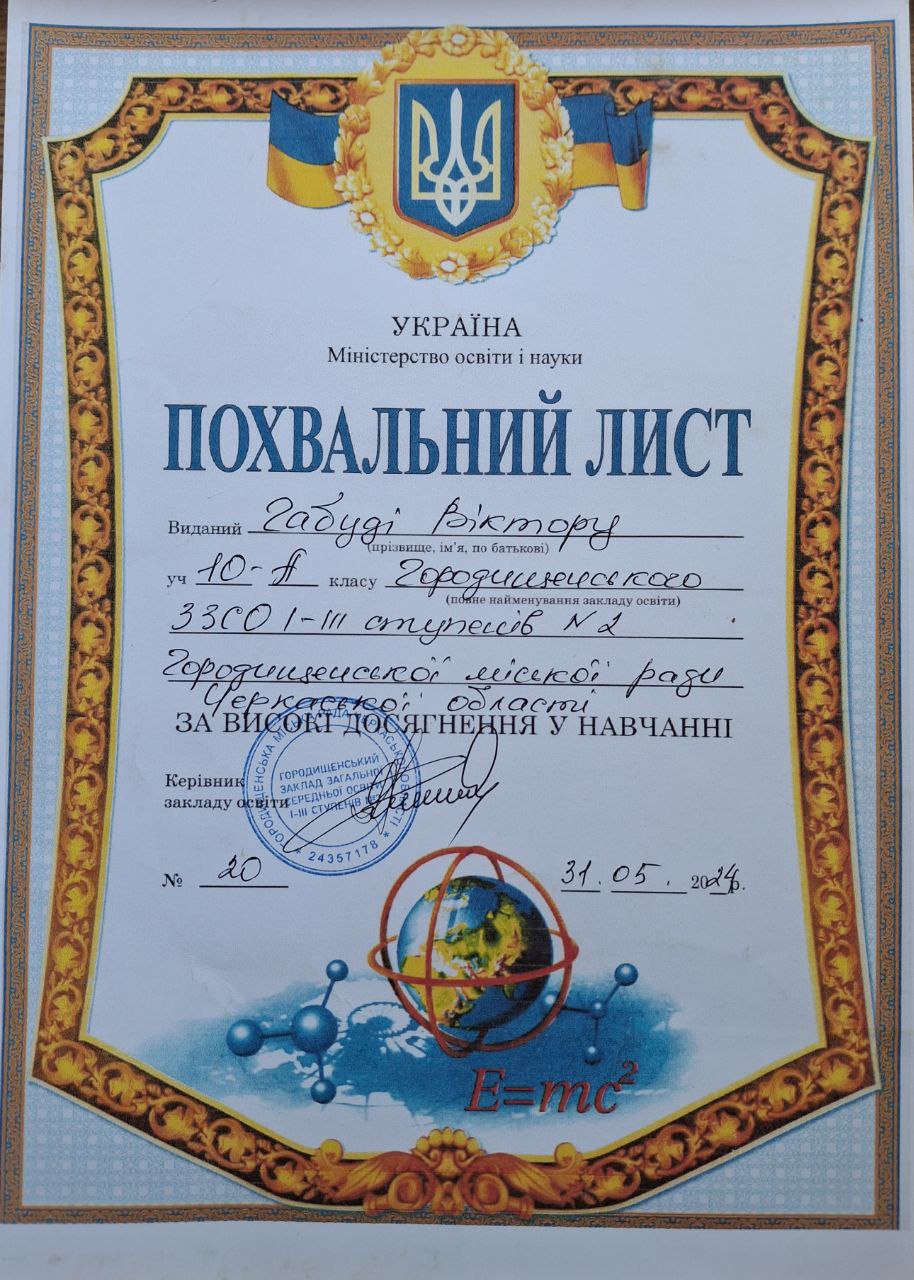 УКРАЇНА
Міністерство освіти і науки
ПОХВАЛЬНИЙ ЛИСТ
Виданий Габуді Віктору
(прізвище, ім'я, по батькові)
уч 10-А класу Городищенського
(повне найменування закладу освіти)
ЗЗСО І-ІІІ ступенів №2
Городищенської міської ради
Черкаської області
ЗА ВИСОКІ ДОСЯГНЕННЯ У НАВЧАННІ
Керівник
закладу освіти
ГОРОДИЩЕНСЬКА МІСЬКА РАДА ЧЕРКАСЬКОЇ ОБЛАСТІ
ГОРОДИЩЕНСЬКИЙ
ЗАКЛАД ЗАГАЛЬНОЇ
СЕРЕДНЬОЇ ОСВІТИ
І-ІІІ СТУПЕНІВ №2
* 24357178 *
№ 20 31.05.2024р.
E=mc²